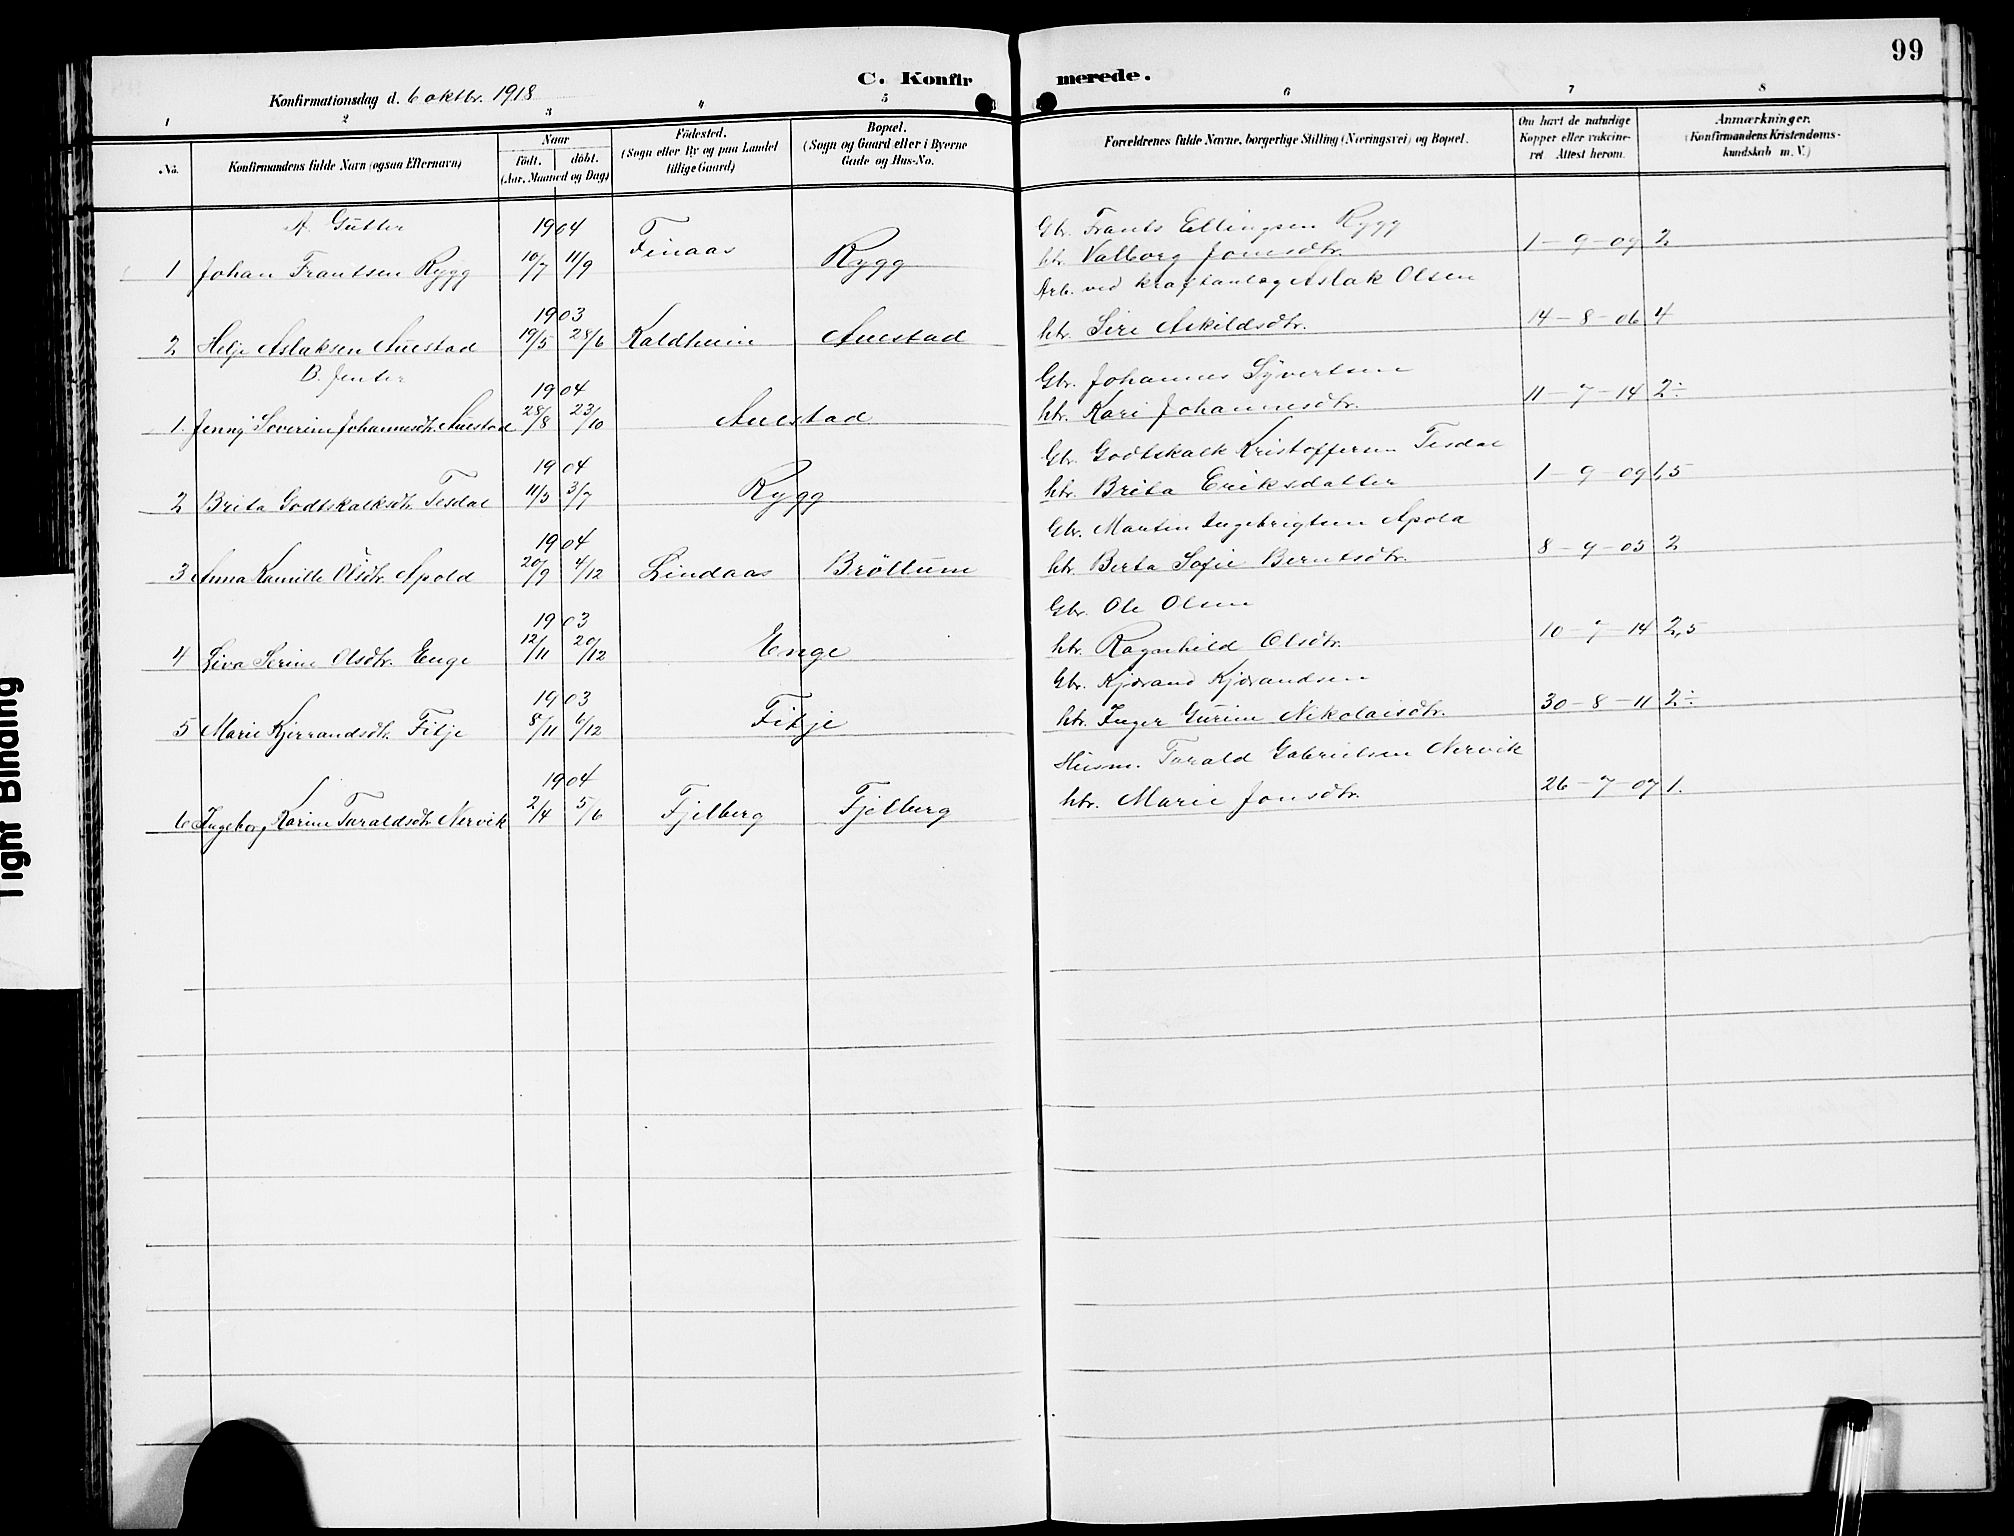 99
C. Konfirmerede.
Konfirmationsdag d. 6 oktbr. 1918
1 2 3 4 5 6 7 8
No.
Konfirmandens fulde Navn (ogsaa Efternavn)
Naar
födt. döbt.
(Aar, Maaned og Dag)
Födested.
(Sogn eller By og paa Landet
tillige Gaard)
Bopæl.
(Sogn og Gaard eller i Byerne
Gade og Hus-No.
Forældrenes fulde Navne, borgerlige Stilling (Næringsvei) og Bopæl.
Om havt de naturlige
Kopper eller vakcine-
ret Attest herom.
Anmærkninger.
(Konfirmandens Kristendoms-
kundskab m. V.)
A. Gutter 1904 Gbr. Frants Ellingsen Rygg
1 Johan Frantsen Rygg 10/7 11/9 Finaas Rygg htr. Valborg Jonsdtr. 1-9-09 2
1903 Arb. ved kraftanlæg Aslak Olsen
2 Helje Aslaksen Auestad 19/5 28/6 Kaldheim Auestad htr. Siri Askildsdtr. 14-8-06 4
B. Jenter 1904 Gbr. Johannes Syvertsen
1. Jenny Severine Johannesdtr. Auestad 28/8 23/10 Auestad htr. Kari Johannesdtr. 11-7-14 2÷
1904 Gbr. Godtskalk Kristoffersen Tesdal
2 Brita Godtskalksdtr. Tesdal 11/5 3/7 Rygg htr. Brita Eriksdatter 1-9-09 1,5
1904 Gbr. Martin Ingebrigtsen Apold
3 Anna Kamille Olsdtr. Apold 20/9 4/12 Lindaas Bröttum htr. Berta Sofie Berntsdtr. 8-9-05 2
1903 Gbr. Ole Olsen
4 Liva Serine Olsdtr. Enge 12/11 20/12 Enge htr. Ragnhild Olsdtr. 10-7-14 2,5
1903 Gbr. Kjærand Kjærandsen
5 Marie Kjerrandsdtr. Fitje 8/11 6/12 Fitje htr. Inger Gurine Nikolaisdtr. 30-8-11 2÷
1904 Husm. Tarald Gabrielsen Nervik
6 Ingeborg Karine Taraldsdtr. Nervik 2/4 5/6 Fjelberg Fjelberg htr. Marie Jonsdtr. 26-7-07 1.
Tight Binding